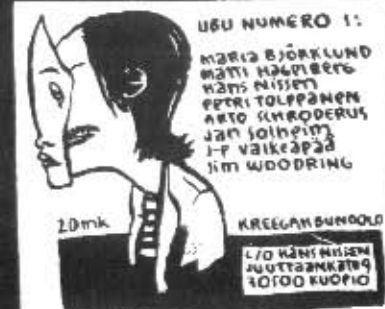 UBU NUMERO 1:
MARIA BJÖRKLUND
MATTI HAGELBERG
HANS NISSEN
PETRI TOLPPANEN
ARTO SCHRODERUS
JAN SOLHEIM
J-P VALKEAPÄÄ
JIM WOODRING
20mk
KREEGAH BUNDOLO
C/O HANS NISSEN
70500 KUOPIO